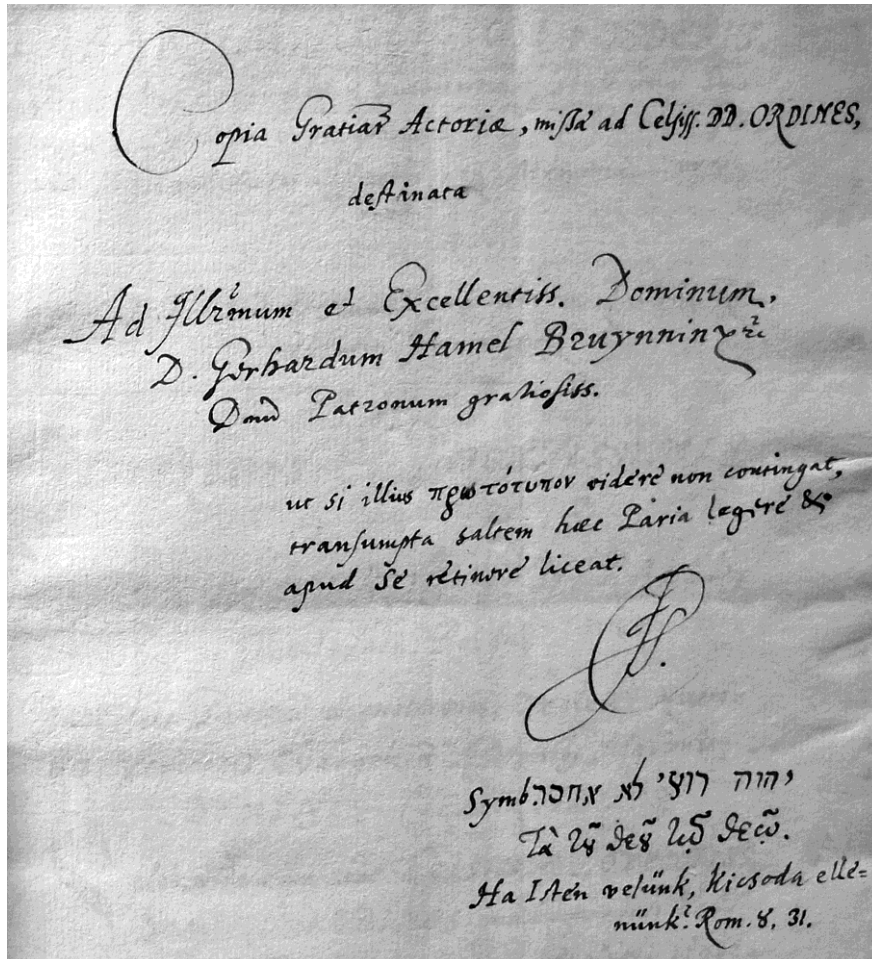 Copia Gratiar̃ Actoriæ, missa ad Celsiss. DD. ORDINES,
destinata
Ad Illr̃mum et Excellentiss. Dominum,
D. Gerhardum Hamel Bruynninx ꝛc
Dnũ Patronum gratiosiss.
ut si illius πρωτότυπον videre non contingat,
transumpta saltem hæc Paria legere &
apud se retinere liceat.
Symb. יהוה רועי לא אחסר
Τὰ τȣ̃ θεȣ̃ τῷ θεῷ.
Ha Isten velünk, kicsoda elle=
nünk? Rom. 8, 31.